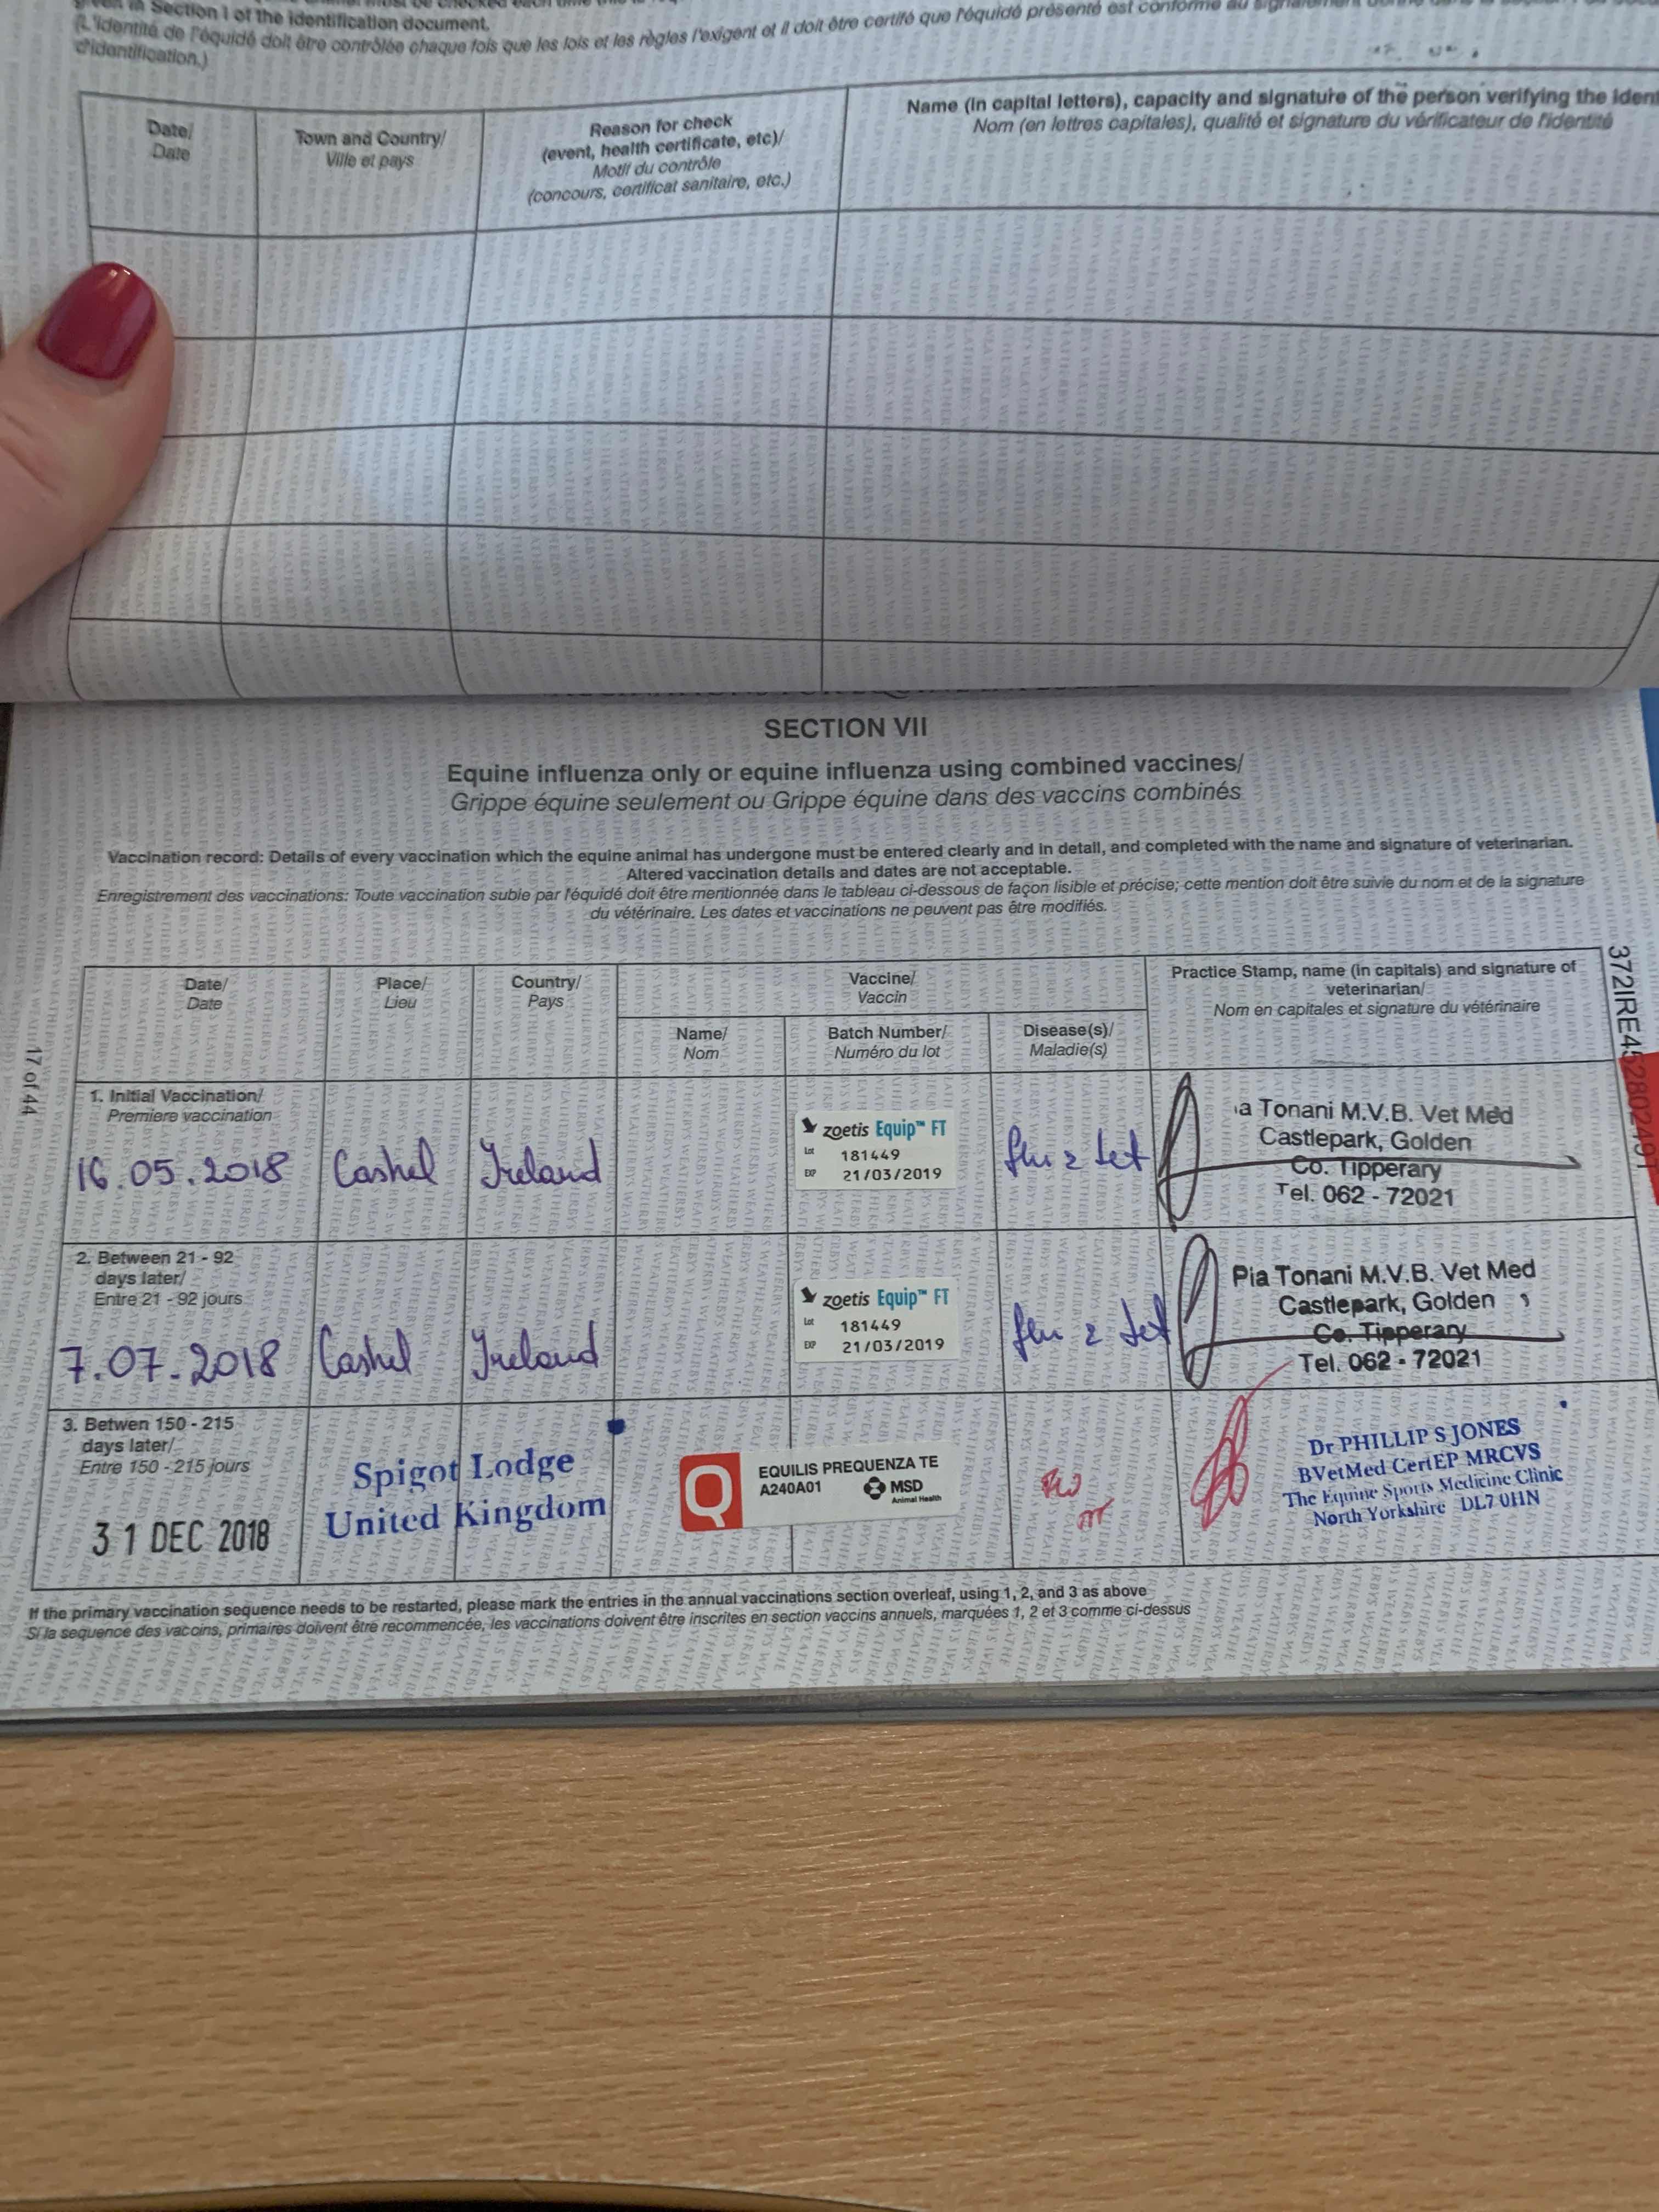 Section I of the identification document.
(L'identité de l'équidé doit être contrôlée chaque fois que les lois et les règles l'exigent et il doit être certifé que l'équidé présenté est conforme au signalement
d'identification.)
Date/
Date
Town and Country/
Ville et pays
Reason for check
(event, health certificate, etc)/
Motif du contrôle
(concours, certificat sanitaire, etc.)
Name (in capital letters), capacity and signature of the person verifying the ident
Nom (en lettres capitales), qualité et signature du vérificateur de l'identité
SECTION VII
Equine influenza only or equine influenza using combined vaccines/
Grippe équine seulement ou Grippe équine dans des vaccins combinés
Vaccination record: Details of every vaccination which the equine animal has undergone must be entered clearly and in detail, and completed with the name and signature of veterinarian.
Altered vaccination details and dates are not acceptable.
Enregistrement des vaccinations: Toute vaccination subie par l'équidé doit être mentionnée dans le tableau ci-dessous de façon lisible et précise; cette mention doit être suivie du nom et de la signature
du vétérinaire. Les dates et vaccinations ne peuvent pas être modifiés.
Date/
Date
Place/
Lieu
Country/
Pays
Vaccine/
Vaccin
Name/
Nom
Batch Number/
Numéro du lot
Disease(s)/
Maladie(s)
Practice Stamp, name (in capitals) and signature of
veterinarian/
Nom en capitales et signature du vétérinaire
1. Initial Vaccination/
Premiere vaccination
16.05.2018
Cashel
Ireland
zoetis Equip™ FT
Lot 181449
EXP 21/03/2019
flu & tet
ia Tonani M.V.B. Vet Med
Castlepark, Golden
Co. Tipperary
Tel. 062 - 72021
2. Between 21 - 92
days later/
Entre 21 - 92 jours
7.07.2018
Cashel
Ireland
zoetis Equip™ FT
Lot 181449
EXP 21/03/2019
flu & tet
Pia Tonani M.V.B. Vet Med
Castlepark, Golden
Co. Tipperary
Tel. 062 - 72021
3. Betwen 150 - 215
days later/
Entre 150 - 215 jours
31 DEC 2018
Spigot Lodge
United Kingdom
Q
EQUILIS PREQUENZA TE
A240A01
MSD
Animal Health
Dr PHILLIP S JONES
BVetMed CertEP MRCVS
The Equine Sports Medicine Clinic
North Yorkshire DL7 0HN
If the primary vaccination sequence needs to be restarted, please mark the entries in the annual vaccinations section overleaf, using 1, 2, and 3 as above
Si la sequence des vaccins, primaires doivent être recommencée, les vaccinations doivent être inscrites en section vaccins annuels, marquées 1, 2 et 3 comme ci-dessus
17 of 44
372IRE45280249T